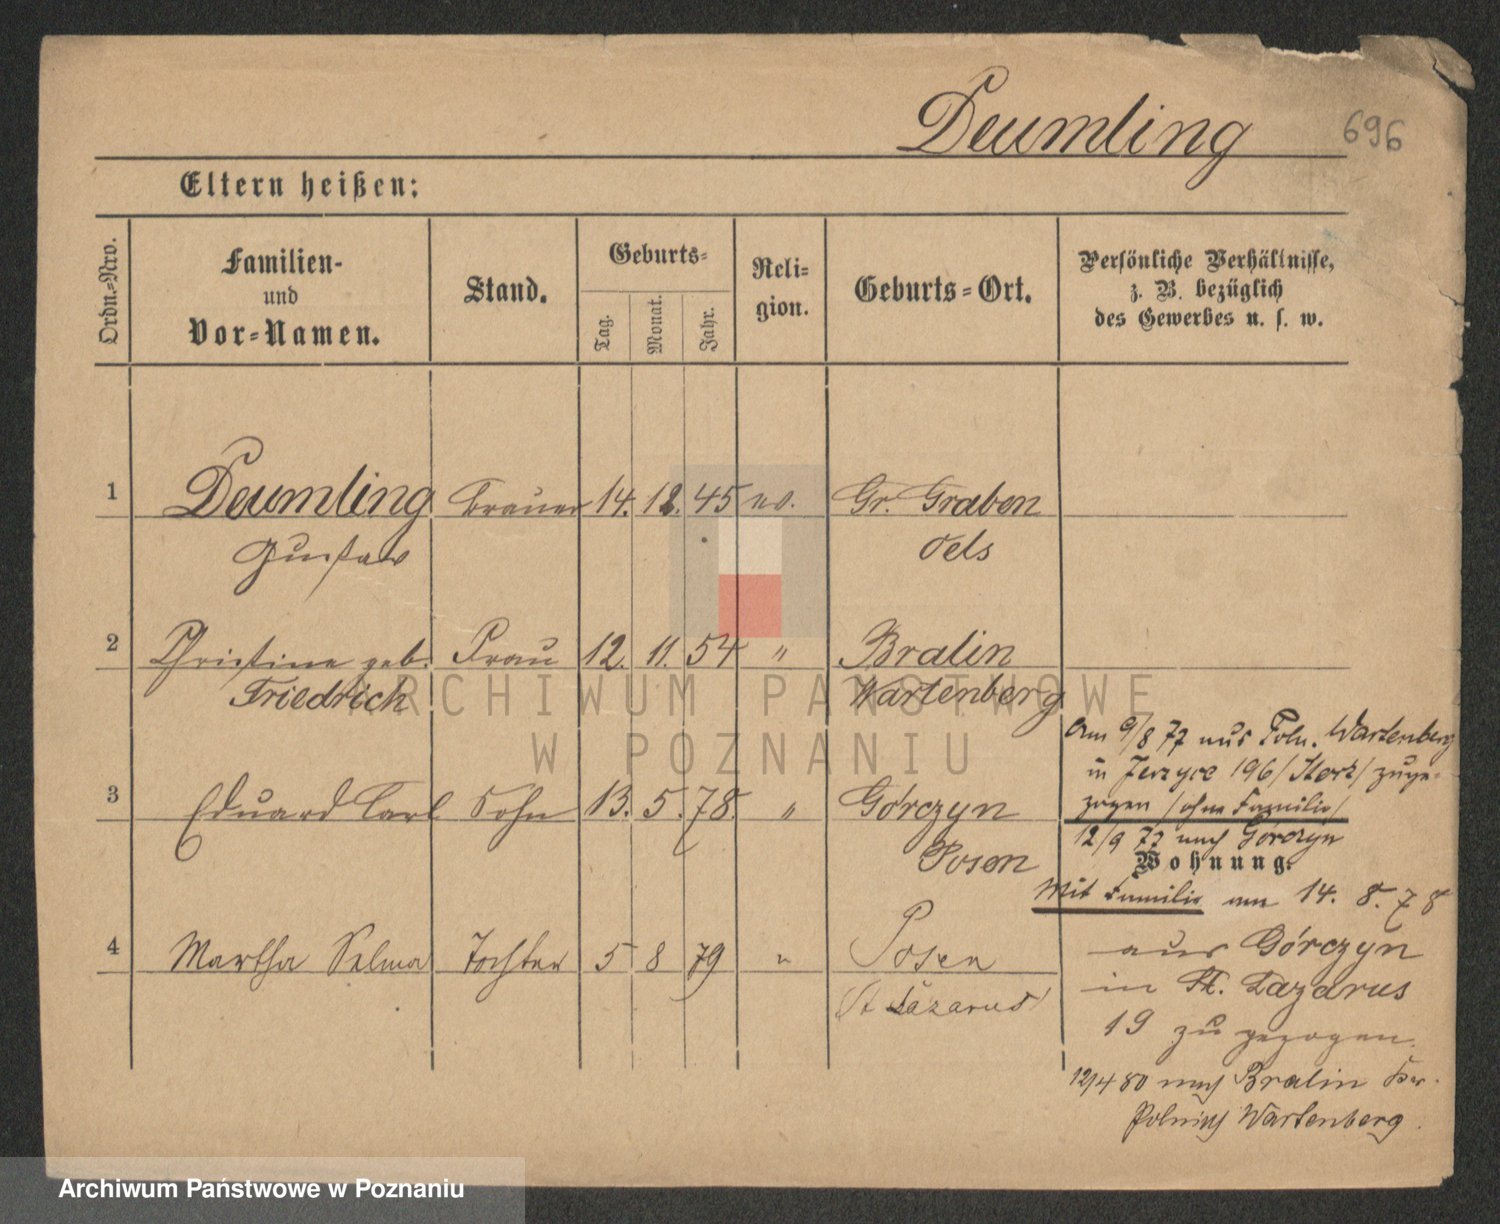 Deumling
696
Eltern heißen:
Ordn.-Nro.
Familien-
und
Vor-Namen.
Stand.
Geburts-
Tag.
Monat.
Jahr.
Reli-
gion.
Geburts-Ort.
Persönliche Verhältnisse,
z. B. bezüglich
des Gewerbes u. s. w.
1 Deumling Brauer 14. 12. 45 ev. Gr. Graben
Gustav Oels
2 Christine geb. Frau 12. 11. 54 " Bralin
Friedrich Wartenberg
ARCHIWUM PAŃSTWOWE
W POZNANIU
3 Eduard Carl Sohn 13. 5. 78. " Górczyn
Posen
4 Martha Selma Tochter 5 8 79 " Posen
(St Lazarus)
Am 9/8 77 aus Poln. Wartenberg
in Jerzyce 196 zuge-
zogen /ohne Familie/
12/9 77 nach Górczyn
Wohnung:
Mit Familie am 14. 8. 78
aus Górczyn
in St. Lazarus
19 zu gezogen.
12/4 80 nach Bralin Kr.
Polnisch Wartenberg.
Archiwum Państwowe w Poznaniu